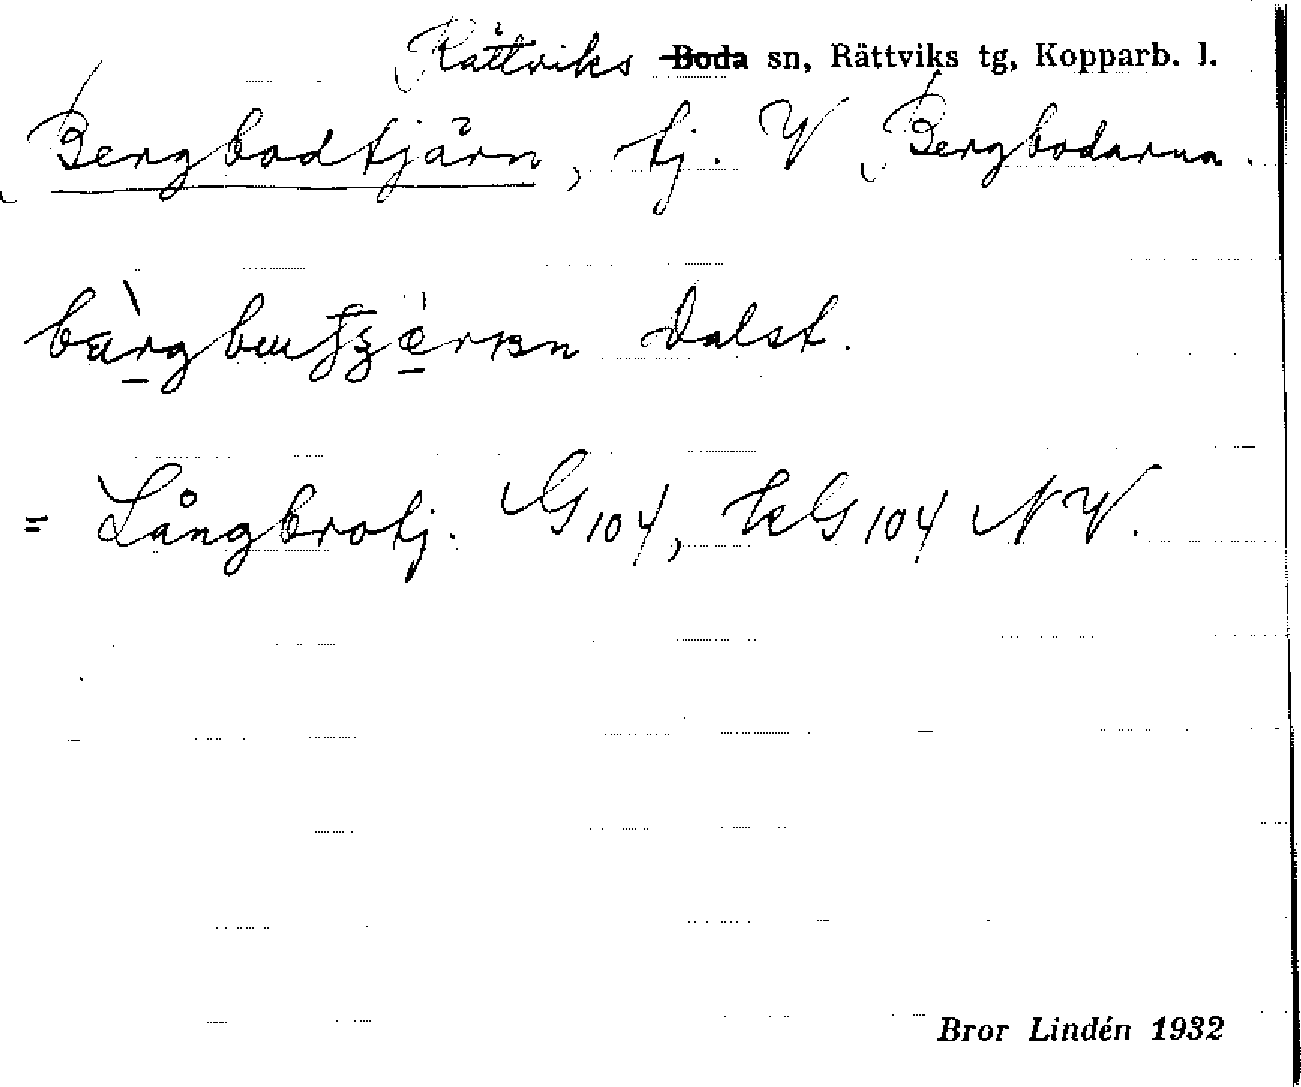 Rättviks ~~Boda~~ sn, Rättviks tg, Kopparb. l.
Bergbodtjärn, tj. V Bergbodarna.
Dalst.
= Långbrotj. G 104, kG 104 NV.
Bror Lindén 1932